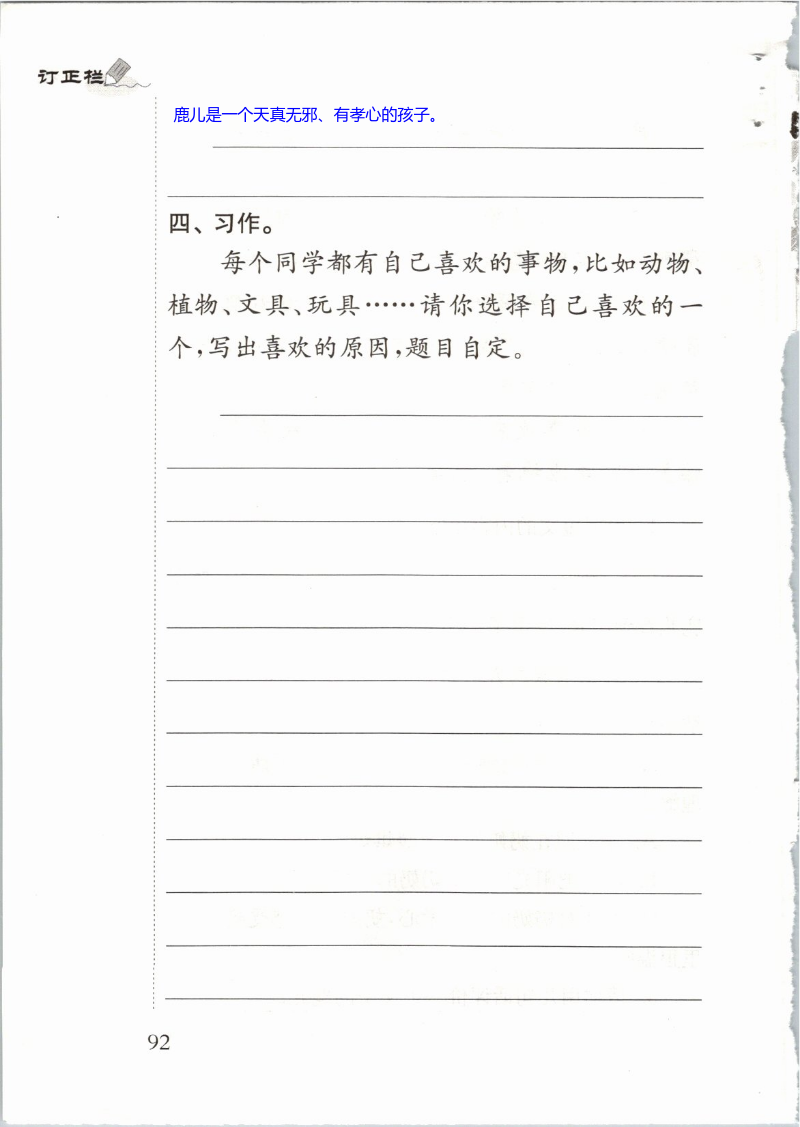 订正栏
鹿儿是一个天真无邪、有孝心的孩子。
四、习作。
每个同学都有自己喜欢的事物,比如动物、
植物、文具、玩具……请你选择自己喜欢的一
个,写出喜欢的原因,题目自定。
92